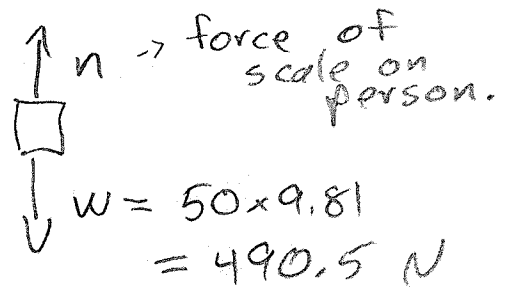 n → force of
scale on
person.
w = 50×9.81
= 490.5 N